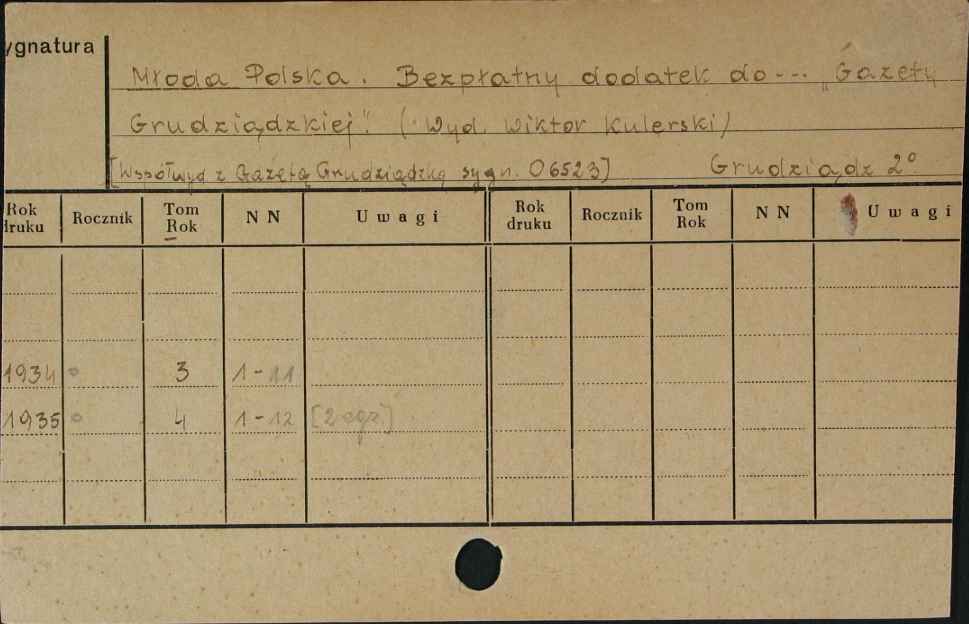 ygnatura
Młoda Polska. Bezpłatny dodatek do --- „Gazety
Grudziądzkiej". (Wyd. Wiktor Kulerski)
[Współwyd z Gazetą Grudziądzką sygn. 06523] Grudziądz 2°
Rok druku Rocznik Tom Rok NN Uwagi Rok druku Rocznik Tom Rok NN Uwagi
1934 3 1-11
1935 4 1-12 [2 egz.]